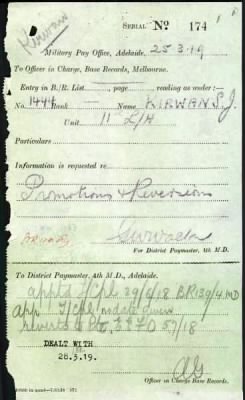 Kirwan
SERIAL No 174
Military Pay Office, Adelaide. 25.3.19
To Officer in Charge, Base Records, Melbourne.
Entry in B/R. List page, reading as under:—
No. 1444 Rank Name KIRWAN S.J.
Unit 11 L/H
Particulars
Information is requested re
Promotions & Reversions
For District Paymaster, 4th M.D.
To District Paymaster, 4th M.D., Adelaide.
apptd T/Cpl 29/6/18 BR 139/4 MD
app T/Cpl no date given
reverts to Pte 5/7/18
DEALT WITH
28.3.19.
AG
Officer in Charge Base Records.